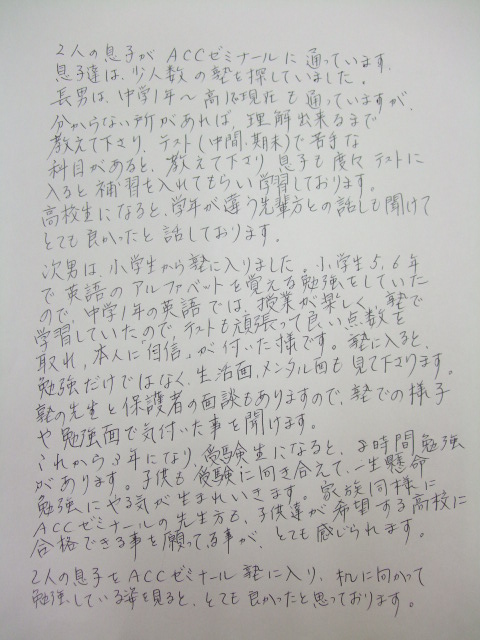 2人の息子がACCゼミナールに通っています。
息子達は、少人数の塾を探していました。
長男は、中学1年〜高1現在も通っていますが、
分からない所があれば、理解出来るまで
教えて下さり、テスト(中間、期末)で苦手な
科目があると、教えて下さり息子も度々テストに
入ると補習を入れてもらい学習しております。
高校生になると、学年が違う先輩方との話しも聞けて
とても良かったと話しております。
次男は、小学生から塾に入りました。小学生5、6年
で英語のアルファベットを覚える勉強をしていた
ので、中学1年の英語では、授業が楽しく、塾で
学習していたので、テストも頑張って良い点数を
取れ、本人に「自信」が付いた様です。塾に入ると、
勉強だけではなく、生活面、メンタル面も見て下さります。
塾の先生と保護者の面談もありますので、塾での様子
や勉強面で気付いた事を聞けます。
これから3年になり、受験生になると、時間勉強
があります。子供も受験に向き合えて、一生懸命
勉強にやる気が生まれいきます。家族同様に
ACCゼミナールの先生方も、子供達が希望する高校に
合格できる事を願ってる事が、とても感じられます。
2人の息子をACCゼミナール塾に入り、机に向かって
勉強している姿を見ると、とても良かったと思っております。